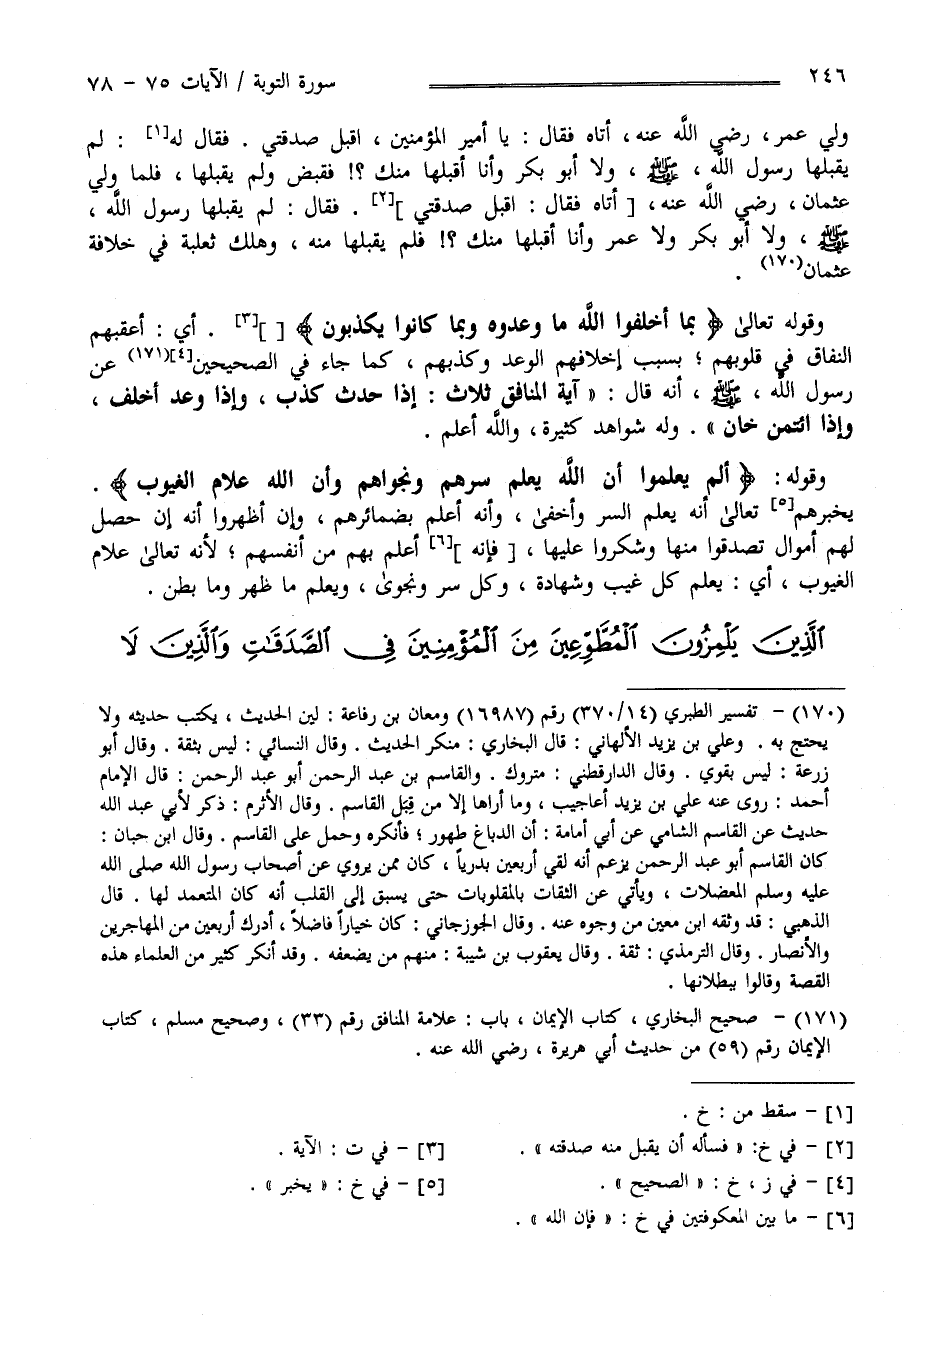 ٢٤٦ سورة التوبة / الآيات ٧٥ - ٧٨
ولي عمر، رضي اللَّه عنه، أتاه فقال : يا أمير المؤمنين ، اقبل صدقتي . فقال له[١] : لم
يقبلها رسول اللَّه ، ﷺ ، ولا أبو بكر وأنا أقبلها منك ؟! فقبض ولم يقبلها ، فلما ولي
عثمان ، رضي اللَّه عنه، [ أتاه فقال : اقبل صدقتي ][٢] . فقال : لم يقبلها رسول اللَّه ،
ﷺ ، ولا أبو بكر ولا عمر وأنا أقبلها منك ؟! فلم يقبلها منه ، وهلك ثعلبة في خلافة
عثمان(١٧٠) .
وقوله تعالىٰ ﴿ بما أخلفوا اللَّه ما وعدوه وبما كانوا يكذبون ﴾ [ ][٣] . أي : أعقبهم
النفاق في قلوبهم ؛ بسبب إخلافهم الوعد وكذبهم ، كما جاء في الصحيحين[٤](١٧١) عن
رسول اللَّه ، ﷺ ، أنه قال : « آية المنافق ثلاث : إذا حدث كذب ، وإذا وعد أخلف ،
وإذا ائتمن خان » . وله شواهد كثيرة ، واللَّه أعلم .
وقوله: ﴿ ألم يعلموا أن اللَّه يعلم سرهم ونجواهم وأن الله علام الغيوب ﴾ .
يخبرهم[٥] تعالىٰ أنه يعلم السر وأخفىٰ ، وأنه أعلم بضمائرهم ، وإن أظهروا أنه إن حصل
لهم أموال تصدقوا منها وشكروا عليها ، [ فإنه ][٦] أعلم بهم من أنفسهم ؛ لأنه تعالىٰ علام
الغيوب ، أي : يعلم كل غيب وشهادة ، وكل سر ونجوىٰ ، ويعلم ما ظهر وما بطن .
ٱلَّذِينَ يَلْمِزُونَ ٱلْمُطَّوِّعِينَ مِنَ ٱلْمُؤْمِنِينَ فِى ٱلصَّدَقَٰتِ وَٱلَّذِينَ لَا
(١٧٠) - تفسير الطبري (٣٧٠/١٤) رقم (١٦٩٨٧) ومعان بن رفاعة : لين الحديث ، يكتب حديثه ولا
يحتج به . وعلي بن يزيد الألهاني : قال البخاري : منكر الحديث . وقال النسائي : ليس بثقة . وقال أبو
زرعة : ليس بقوي . وقال الدارقطني : متروك . والقاسم بن عبد الرحمن أبو عبد الرحمن : قال الإمام
أحمد : روى عنه علي بن يزيد أعاجيب ، وما أراها إلا من قِبَل القاسم . وقال الأثرم : ذكر لأبي عبد الله
حديث عن القاسم الشامي عن أبي أمامة : أن الدباغ طهور ؛ فأنكره وحمل على القاسم . وقال ابن حبان :
كان القاسم أبو عبد الرحمن يزعم أنه لقي أربعين بدرياً ، كان ممن يروي عن أصحاب رسول الله صلى الله
عليه وسلم المعضلات ، ويأتي عن الثقات بالمقلوبات حتى يسبق إلى القلب أنه كان المتعمد لها . قال
الذهبي : قد وثقه ابن معين من وجوه عنه . وقال الجوزجاني : كان خياراً فاضلاً ، أدرك أربعين من المهاجرين
والأنصار . وقال الترمذي : ثقة . وقال يعقوب بن شيبة : منهم من يضعفه . وقد أنكر كثير من العلماء هذه
القصة وقالوا ببطلانها .
(١٧١) - صحيح البخاري ، كتاب الإيمان ، باب : علامة المنافق رقم (٣٣) ، وصحيح مسلم ، كتاب
الإيمان رقم (٥٩) من حديث أبي هريرة ، رضي الله عنه .
[١] - سقط من : خ .
[٢] - في خ: « فسأله أن يقبل منه صدقته » . [٣] - في ت : الآية .
[٤] - في ز ، خ : « الصحيح » . [٥] - في خ : « يخبر » .
[٦] - ما بين المعكوفتين في خ : « فإن الله » .